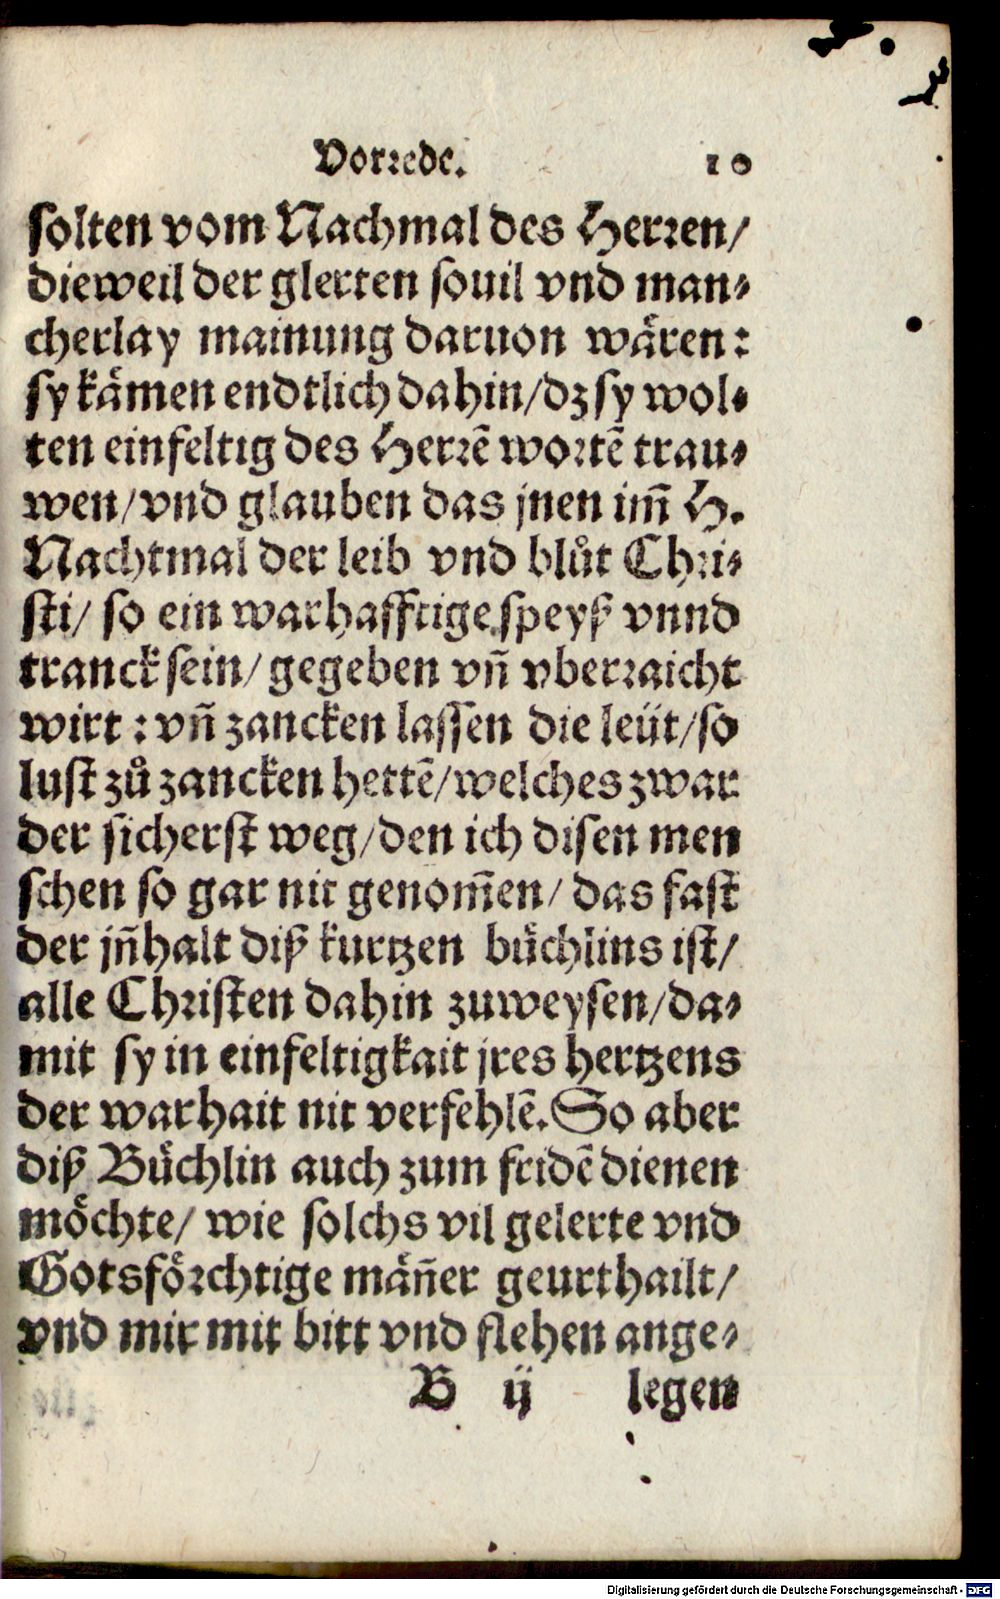 Vorrede. 10
solten vom Nachmal des Herren/
dieweil der glerten souil vnd man⸗
cherlay mainung daruon wåren:
sy kåmen endtlich dahin/dz sy wol⸗
ten einfeltig des Herrẽ wortẽ trau⸗
wen/vnd glauben das jnen im̃ H.
Nachtmal der leib vnd blůt Chri⸗
sti/ so ein warhafftige speyß vnnd
tranck sein/ gegeben vñ vberraicht
wirt: vñ zancken lassen die leüt/so
lust zů zancken hettẽ/welches zwar
der sicherst weg/den ich disen men
schen so gar nit genom̃en/ das fast
der jñhalt diß kurtzen bůchlins ist/
alle Christen dahin zuweysen/da⸗
mit sy in einfeltigkait jres hertzens
der warhait nit verfehlẽ. So aber
diß Bůchlin auch zum fridẽ dienen
möchte/ wie solchs vil gelerte vnd
Gotsförchtige måñer geurthailt/
vnd mir mit bitt vnd flehen ange⸗
B ij legen
Digitalisierung gefördert durch die Deutsche Forschungsgemeinschaft - DFG